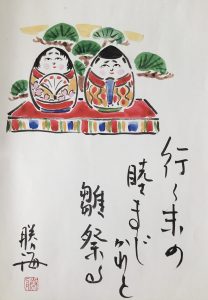 行く末の
睦まじ
かれと
雛祭る
勝海